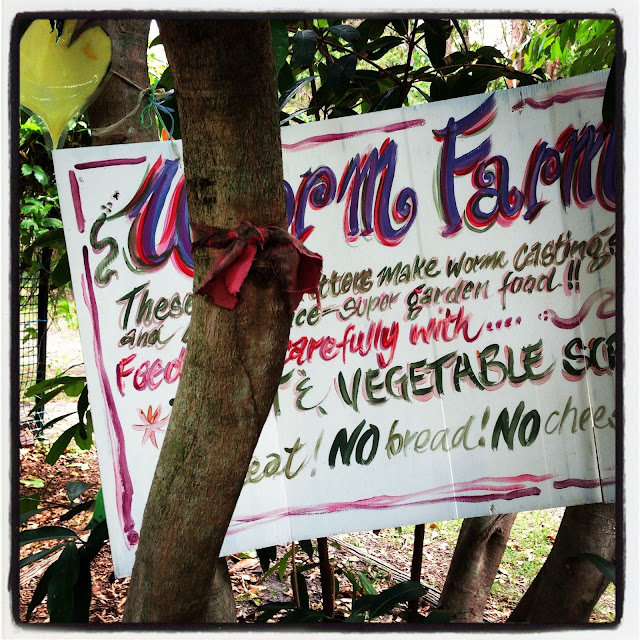 Worm Farm
These ctors make worm castings
and ce-super garden food!!
Feed carefully with....
& VEGETABLE SC
eat! NO bread! NO chees